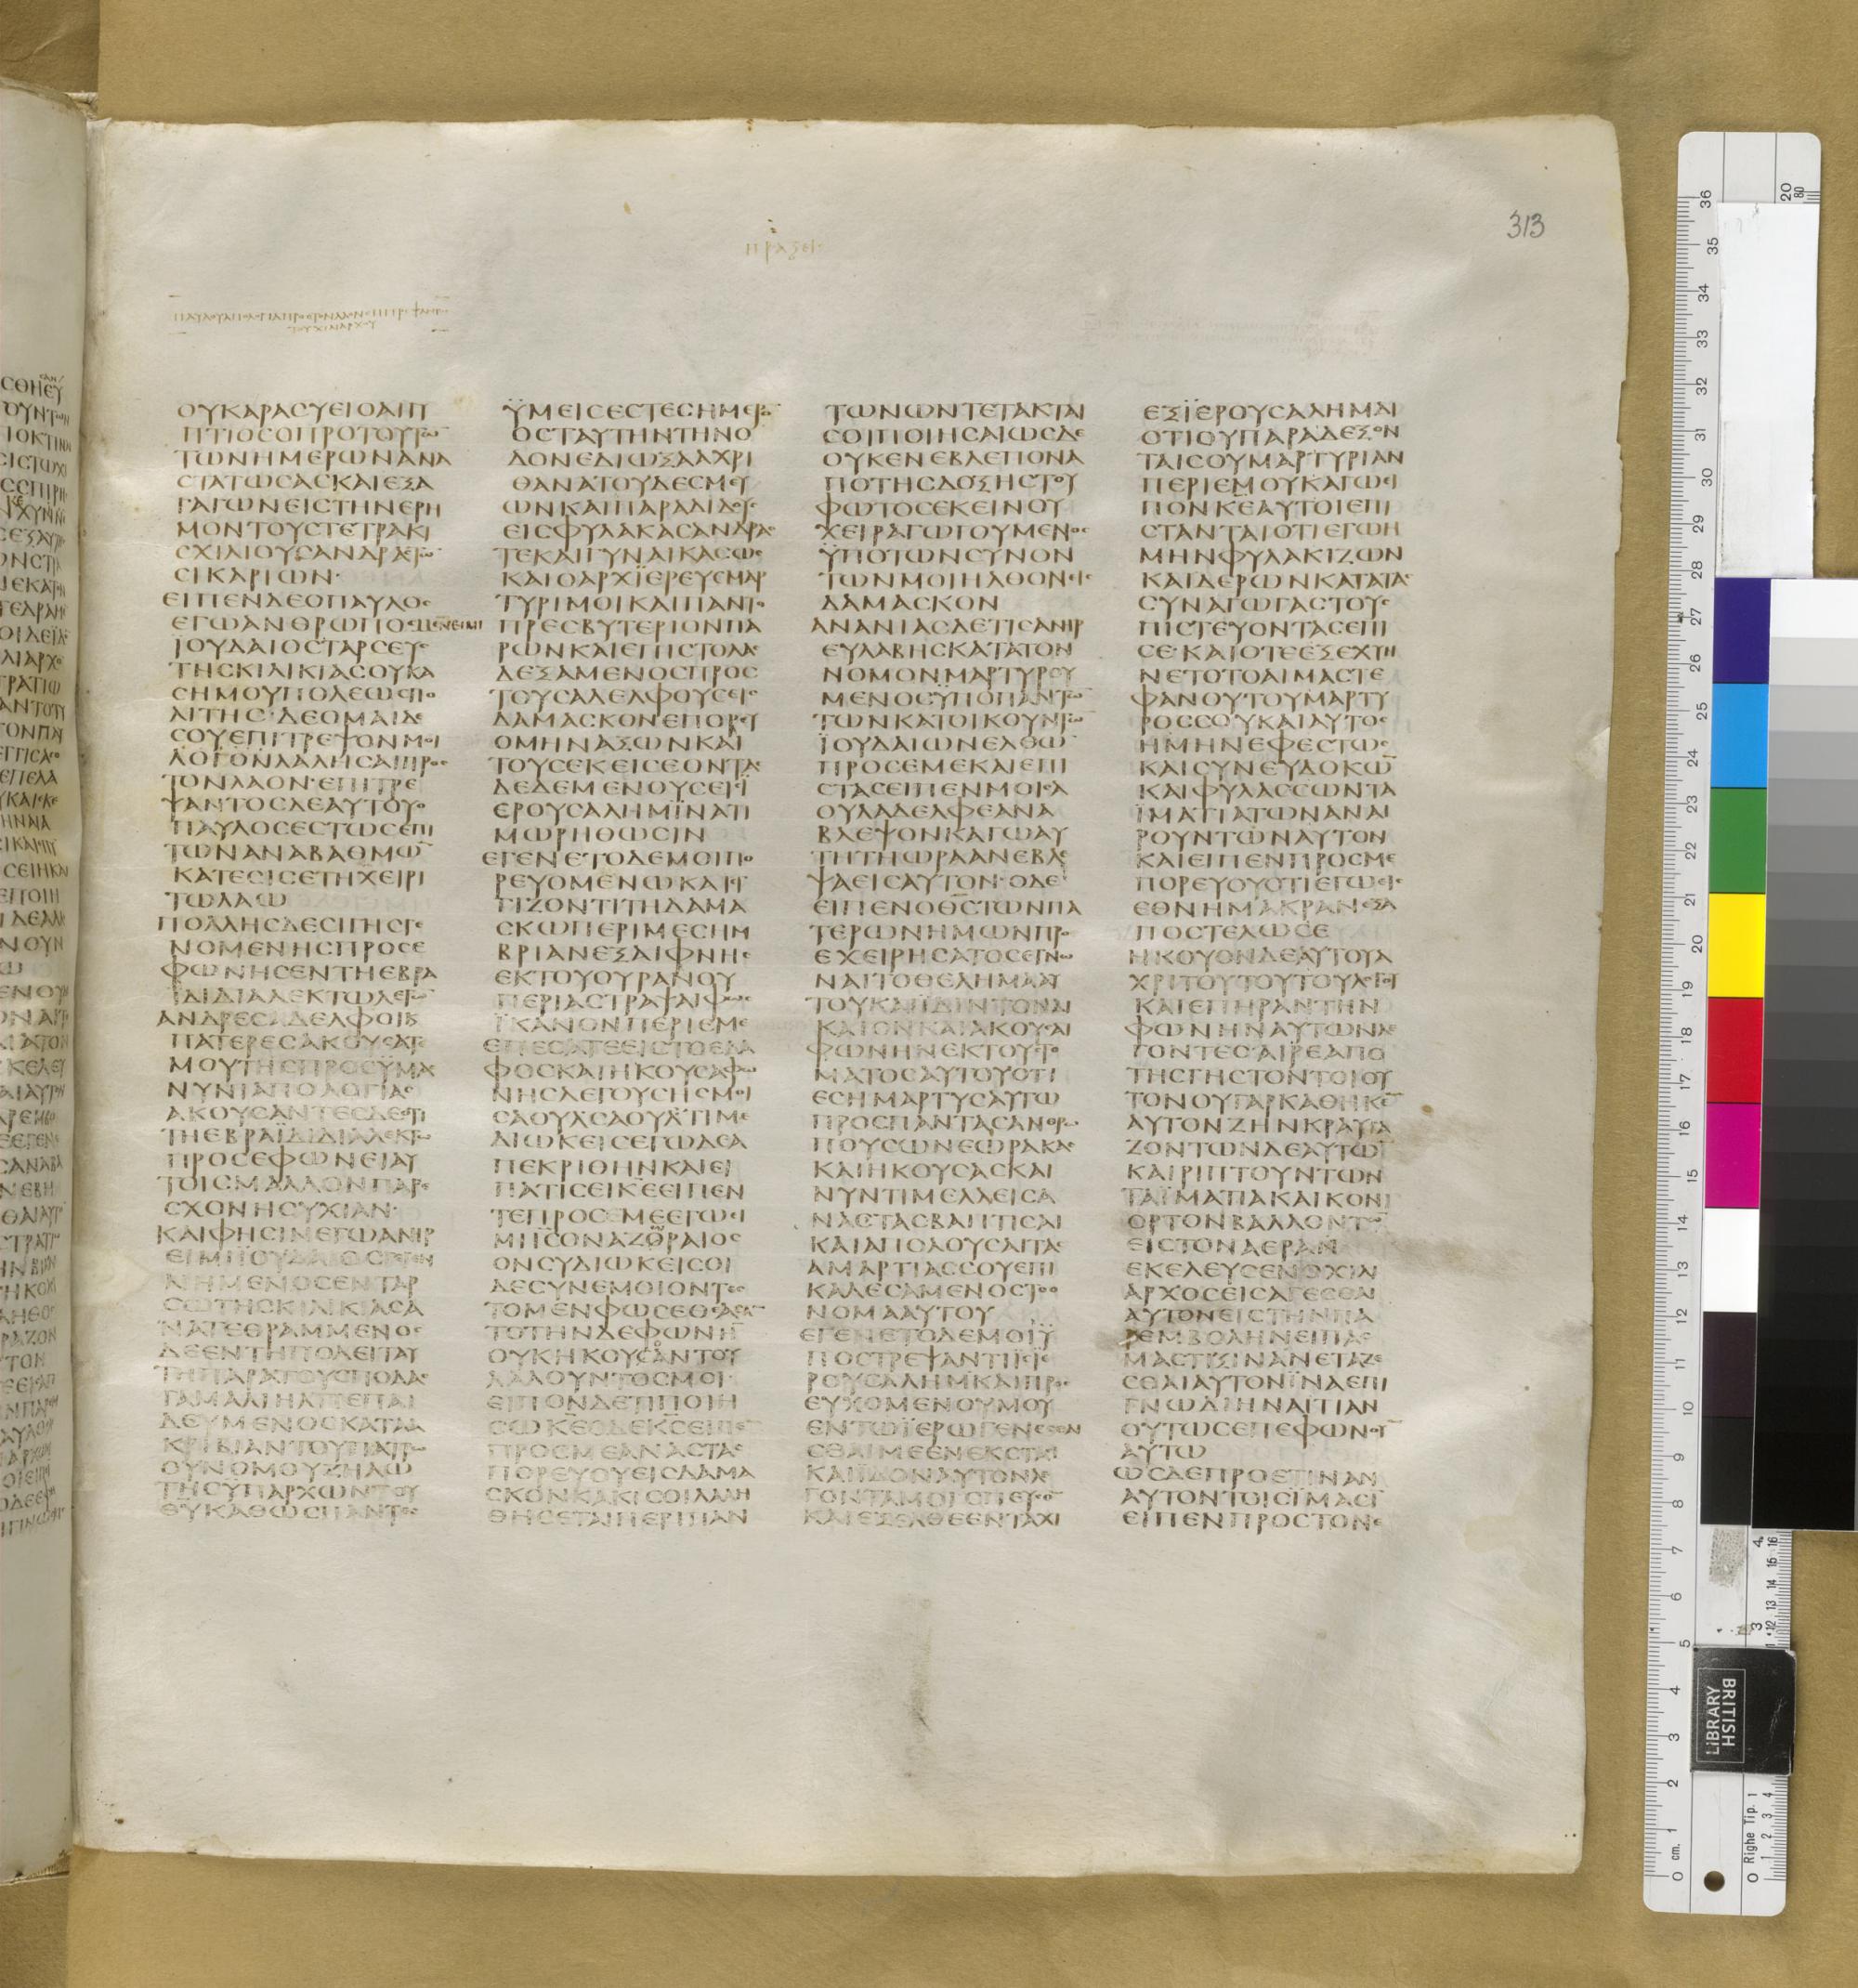 ΠΡΑΞΕΙC
ΟΥΚΑΡΑCΥΕΙΟΑΙΓΥ
ΠΤΙΟCΟΠΡΟΤΟΥΤΩ̅
ΤΩΝΗΜΕΡΩΝΑΝΑ
CΤΑΤΩCΑCΚΑΙΕΞΑ
ΓΑΓΩΝΕΙCΤΗΝΕΡΗ
ΜΟΝΤΟΥCΤΕΤΡΑΚΙ
CΧΙΛΙΟΥCΑΝΔΡΑCΤΩ̅
CΙΚΑΡΙΩΝ·
ΕΙΠΕΝΔΕΟΠΑΥΛΟC
ΕΓΩΑΝΘΡΩΠΟCΜΕΝΕΙΜΙ
ΙΟΥΔΑΙΟCΤΑΡCΕΥC
ΤΗCΚΙΛΙΚΙΑCΟΥΚΑ
CΗΜΟΥΠΟΛΕΩCΠΟ
ΛΙΤΗC·ΔΕΟΜΑΙΔΕ
CΟΥΕΠΙΤΡΕΨΟΝΜΟΙ
ΛΟΓΟΝΛΑΛΗCΑΙΠΡΟC
ΤΟΝΛΑΟΝ·ΕΠΙΤΡΕ
ΨΑΝΤΟCΔΕΑΥΤΟΥΟ
ΠΑΥΛΟCΕCΤΩCΕΠΙ
ΤΩΝΑΝΑΒΑΘΜΩ̅
ΚΑΤΕCΙCΕΤΗΧΕΙΡΙ
ΤΩΛΑΩ
ΠΟΛΛΗCΔΕCΙΓΗCΓΕ
ΝΟΜΕΝΗCΠΡΟCΕ
ΦΩΝΗCΕΝΤΗΕΒΡΑ
ΪΔΙΔΙΑΛΕΚΤΩΛΕΓΩ̅
ΑΝΔΡΕCΑΔΕΛΦΟΙΚ
ΠΑΤΕΡΕCΑΚΟΥCΑΤΕ
ΜΟΥΤΗCΠΡΟCΫΜΑC
ΝΥΝΙΑΠΟΛΟΓΙΑC
ΑΚΟΥCΑΝΤΕCΔΕΟΤΙ
ΤΗΕΒΡΑΪΔΙΔΙΑΛΕΚΤΩ
ΠΡΟCΕΦΩΝΕΙΑΥ
ΤΟΙCΜΑΛΛΟΝΠΑΡΕ
CΧΟΝΗCΥΧΙΑΝ·
ΚΑΙΦΗCΙΝΕΓΩΑΝΗΡ
ΕΙΜΙΪΟΥΔΑΙΟCΓΕΓΕΝ
ΝΗΜΕΝΟCΕΝΤΑΡ
CΩΤΗCΚΙΛΙΚΙΑCΑ
ΝΑΤΕΘΡΑΜΜΕΝΟC
ΔΕΕΝΤΗΠΟΛΕΙΤΑΥ
ΤΗΠΑΡΑΤΟΥCΠΟΔΑC
ΓΑΜΑΛΙΗΛΠΕΠΑΙ
ΔΕΥΜΕΝΟCΚΑΤΑΑ
ΚΡΙΒΙΑΝΤΟΥΠΑΤΡΩ
ΟΥΝΟΜΟΥΖΗΛΩ
ΤΗCΫΠΑΡΧΩΝΤΟΥ
ΘΥΚΑΘΩCΠΑΝΤΕC
ΫΜΕΙCΕCΤΕCΗΜΕΡΟ̅
ΟCΤΑΥΤΗΝΤΗΝΟ
ΔΟΝΕΔΙΩΞΑΑΧΡΙ
ΘΑΝΑΤΟΥΔΕCΜΕΥ
ΩΝΚΑΙΠΑΡΑΔΙΔΟΥC
ΕΙCΦΥΛΑΚΑCΑΝΔΡΑC
ΤΕΚΑΙΓΥΝΑΙΚΑCΩC
ΚΑΙΟΑΡΧΪΕΡΕΥCΜΑΡ
ΤΥΡΙΜΟΙΚΑΙΠΑΝΤΟ
ΠΡΕCΒΥΤΕΡΙΟΝΠΑ
ΡΩΝΚΑΙΕΠΙCΤΟΛΑC
ΔΕΞΑΜΕΝΟCΠΡΟC
ΤΟΥCΑΔΕΛΦΟΥCΕΙC
ΔΑΜΑCΚΟΝΕΠΟΡΕΥ
ΟΜΗΝΑΞΩΝΚΑΙ
ΤΟΥCΕΚΕΙCΕΟΝΤΑC
ΔΕΔΕΜΕΝΟΥCΕΙCΪ
ΕΡΟΥCΑΛΗΜΪΝΑΤΙ
ΜΩΡΗΘΩCΙΝ
ΕΓΕΝΕΤΟΔΕΜΟΙΠΟ
ΡΕΥΟΜΕΝΩΚΑΙΕΓ
ΓΙΖΟΝΤΙΤΗΔΑΜΑ
CΚΩΠΕΡΙΜΕCΗΜ
ΒΡΙΑΝΕΞΑΙΦΝΗC
ΕΚΤΟΥΟΥΡΑΝΟΥ
ΠΕΡΙΑCΤΡΑΨΑΙΦΩC
ΪΚΑΝΟΝΠΕΡΙΕΜΕ
ΕΠΕCΑΤΕΕΙCΤΟΕΔΑ
ΦΟCΚΑΙΗΚΟΥCΑΦΩ
ΝΗCΛΕΓΟΥCΗCΜΟΙ
CΑΟΥΛCΑΟΥΛΤΙΜΕ
ΔΙΩΚΕΙCΕΓΩΔΕΑ
ΠΕΚΡΙΘΗΝΚΑΙΕΙ
ΠΑΤΙCΕΙΚ̅Ε̅ΕΙΠΕΝ
ΤΕΠΡΟCΜΕΕΓΩΕΙ
ΜΙΙCΟΝΑΖΩΡΑΙΟC
ΟΝCΥΔΙΩΚΕΙCΟΙ
ΔΕCΥΝΕΜΟΙΟΝΤΕC
ΤΟΜΕΝΦΩCΕΘΕΑCΑ̅
ΤΟΤΗΝΔΕΦΩΝΗ̅
ΟΥΚΗΚΟΥCΑΝΤΟΥ
ΛΑΛΟΥΝΤΟCΜΟΙ·
ΕΙΠΟΝΔΕΤΙΠΟΙΗ
CΩΚ̅Ε̅ΟΔΕΚ̅C̅ΕΙΠΕ̅
ΠΡΟCΜΕΑΝΑCΤΑC
ΠΟΡΕΥΟΥΕΙCΔΑΜΑ
CΚΟΝΚΑΚΙCΟΙΛΑΛΗ
ΘΗCΕΤΑΙΠΕΡΙΠΑΝ
ΤΩΝΩΝΤΕΤΑΚΤΑΙ
CΟΙΠΟΙΗCΑΙΩCΔΕ
ΟΥΚΕΝΕΒΛΕΠΟΝΑ
ΠΟΤΗCΔΟΞΗCΤΟΥ
ΦΩΤΟCΕΚΕΙΝΟΥ
ΧΕΙΡΑΓΩΓΟΥΜΕΝΟC
ΫΠΟΤΩΝCΥΝΟΝ
ΤΩΝΜΟΙΗΛΘΟΝΕΙC
ΔΑΜΑCΚΟΝ
ΑΝΑΝΙΑCΔΕΤΙCΑΝΗΡ
ΕΥΛΑΒΗCΚΑΤΑΤΟΝ
ΝΟΜΟΝΜΑΡΤΥΡΟΥ
ΜΕΝΟCΫΠΟΠΑΝΤΩ̅
ΤΩΝΚΑΤΟΙΚΟΥΝΤΩ̅
ΪΟΥΔΑΙΩΝΕΛΘΩ̅
ΠΡΟCΕΜΕΚΑΙΕΠΙ
CΤΑCΕΙΠΕΝΜΟΙCΑ
ΟΥΛΑΔΕΛΦΕΑΝΑ
ΒΛΕΨΟΝΚΑΓΩΑΥ
ΤΗΤΗΩΡΑΑΝΕΒΛΕ
ΨΑΕΙCΑΥΤΟΝ·ΟΔΕ
ΕΙΠΕΝΟΘ̅C̅ΤΩΝΠΑ
ΤΕΡΩΝΗΜΩΝΠΡΟ
ΕΧΕΙΡΗCΑΤΟCΕΓΝΩ
ΝΑΙΤΟΘΕΛΗΜΑΑΥ
ΤΟΥΚΑΙΪΔΙΝΤΟΝΔΙ
ΚΑΙΟΝΚΑΙΑΚΟΥCΑΙ
ΦΩΝΗΝΕΚΤΟΥCΤΟ
ΜΑΤΟCΑΥΤΟΥΟΤΙ
ΕCΗΜΑΡΤΥCΑΥΤΩ
ΠΡΟCΠΑΝΤΑCΑΝΘΡΩ
ΠΟΥCΩΝΕΩΡΑΚΑC
ΚΑΙΗΚΟΥCΑCΚΑΙ
ΝΥΝΤΙΜΕΛΛΕΙCΑ
ΝΑCΤΑCΒΑΠΤΙCΑΙ
ΚΑΙΑΠΟΛΟΥCΑΙΤΑC
ΑΜΑΡΤΙΑCCΟΥΕΠΙ
ΚΑΛΕCΑΜΕΝΟCΤΟΟ
ΝΟΜΑΑΥΤΟΥ
ΕΓΕΝΕΤΟΔΕΜΟΙΫ
ΠΟCΤΡΕΨΑΝΤΙΕΙCΪΕ
ΡΟΥCΑΛΗΜΚΑΙΠΡΟC
ΕΥΧΟΜΕΝΟΥΜΟΥ
ΕΝΤΩΪΕΡΩΓΕΝΕCΘΑΙ
CΘΑΙΜΕΕΝΕΚCΤΑCΙ
ΚΑΙΪΔΟΝΑΥΤΟΝΛΕ
ΓΟΝΤΑΜΟΙCΠΕΥCΟ̅
ΚΑΙΕΞΕΛΘΕΕΝΤΑΧΙ
ΕΞΪΕΡΟΥCΑΛΗΜΔΙ
ΟΤΙΟΥΠΑΡΑΔΕΞΟΝ
ΤΑΙCΟΥΜΑΡΤΥΡΙΑΝ
ΠΕΡΙΕΜΟΥΚΑΓΩΕΙ
ΠΟΝΚ̅Ε̅ΑΥΤΟΙΕΠΙ
CΤΑΝΤΑΙΟΤΙΕΓΩΗ
ΜΗΝΦΥΛΑΚΙΖΩΝ
ΚΑΙΔΕΡΩΝΚΑΤΑΤΑC
CΥΝΑΓΩΓΑCΤΟΥC
ΠΙCΤΕΥΟΝΤΑCΕΠΙ
CΕ·ΚΑΙΟΤΕΕΞΕΧΥΝ
ΝΕΤΟΤΟΑΙΜΑCΤΕ
ΦΑΝΟΥΤΟΥΜΑΡΤΥ
ΡΟCCΟΥΚΑΙΑΥΤΟC
ΗΜΗΝΕΦΕCΤΩC
ΚΑΙCΥΝΕΥΔΟΚΩ̅
ΚΑΙΦΥΛΑCCΩΝΤΑ
ΪΜΑΤΙΑΤΩΝΑΝΑΙ
ΡΟΥΝΤΩΝΑΥΤΟΝ
ΚΑΙΕΙΠΕΝΠΡΟCΜΕ
ΠΟΡΕΥΟΥΟΤΙΕΓΩΕΙC
ΕΘΝΗΜΑΚΡΑΝΕΞΑ
ΠΟCΤΕΛΩCΕ
ΗΚΟΥΟΝΔΕΑΥΤΟΥΑ
ΧΡΙΤΟΥΤΟΥΤΟΥΛΟΓΟΥ
ΚΑΙΕΠΗΡΑΝΤΗΝ
ΦΩΝΗΝΑΥΤΩΝΛΕ
ΓΟΝΤΕC·ΑΙΡΕΑΠΟ
ΤΗCΓΗCΤΟΝΤΟΙΟΥ
ΤΟΝΟΥΓΑΡΚΑΘΗΚΕ̅
ΑΥΤΟΝΖΗΝΚΡΑΥΓΑ
ΖΟΝΤΩΝΔΕΑΥΤΩ̅
ΚΑΙΡΙΠΤΟΥΝΤΩΝ
ΤΑΪΜΑΤΙΑΚΑΙΚΟΝΙ
ΟΡΤΟΝΒΑΛΛΟΝΤΩ̅
ΕΙCΤΟΝΑΕΡΑΝ
ΕΚΕΛΕΥCΕΝΟΧΙΛΙ
ΑΡΧΟCΕΙCΑΓΕCΘΑΙ
ΑΥΤΟΝΕΙCΤΗΝΠΑ
ΡΕΜΒΟΛΗΝΕΙΠΑC
ΜΑCΤΙΞΙΝΑΝΕΤΑΖΕ
CΘΑΙΑΥΤΟΝΪΝΑΕΠΙ
ΓΝΩΔΙΗΝΑΙΤΙΑΝ
ΟΥΤΩCΕΠΕΦΩΝΟΥ̅
ΑΥΤΩ
ΩCΔΕΠΡΟΕΤΙΝΑΝ
ΑΥΤΟΝΤΟΙCΪΜΑCΙ̅
ΕΙΠΕΝΠΡΟCΤΟΝΕ
313
BRITISH
LIBRARY